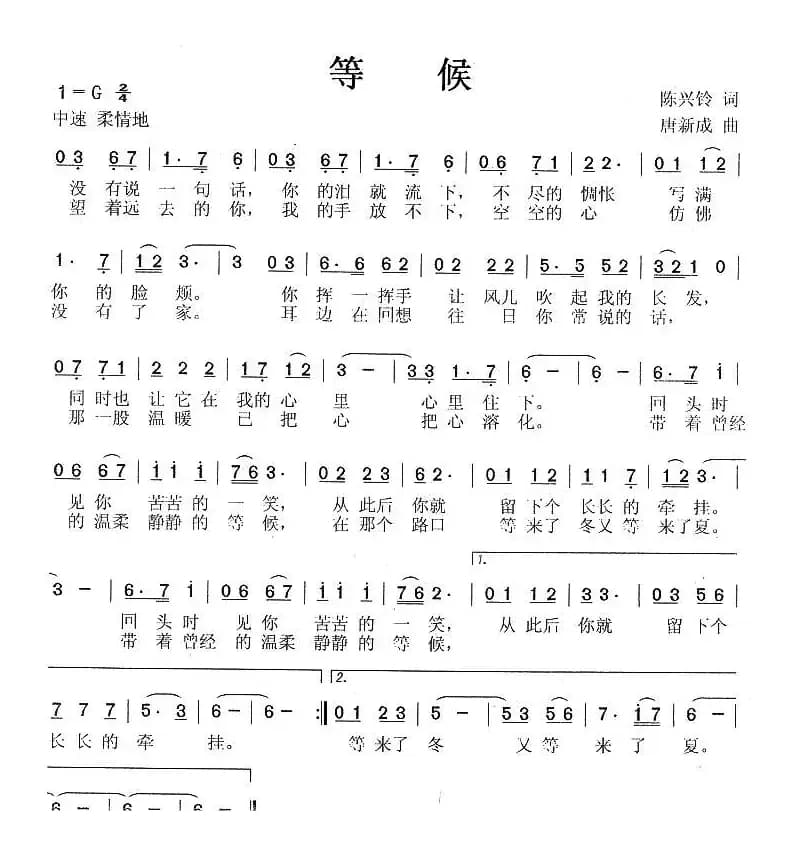 等 候
1=G 2/4
陈兴铃 词
中速 柔情地
唐新成 曲
03 67 | 1· 7 6 | 03 67 | 1· 7 6 | 06 71 | 22· | 01 12 |
没有说一句话, 你的泪就流下, 不尽的惆怅 写满
望着远去的你, 我的手放不下, 空空的心 仿佛
1· 7 | 12 3· | 3 03 | 6· 6 62 | 02 22 | 5· 5 52 | 321 0 |
你的脸颊。 你挥一挥手 让风儿吹起我的长发,
没有了家。 耳边在回想 往日你常说的话,
07 71 | 2 2 2 | 17 12 | 3 - | 33 1·7 | 6 - | 6 - | 6·7 i |
同时也让它在我的心里 心里住下。 回头时
那一股温暖 已把心 把心溶化。 带着曾经
06 67 | i i i | 763· | 02 23 | 62· | 01 12 | 11 7 | 123· |
见你 苦苦的一笑, 从此后你就 留下个长长的牵挂。
的温柔静静的等候, 在那个路口 等来了冬又等来了夏。
1.
3 - | 6·7 i | 06 67 | i i i | 762· | 01 12 | 33· | 03 56 |
回头时 见你 苦苦的一笑, 从此后你就 留下个
带着曾经 的温柔 静静的等候,
2.
7 7 7 | 5·3 | 6 - | 6 - :‖ 01 23 | 5 - | 53 56 | 7· i7 |
长长的牵挂。 等来了冬 又等来了夏。
6 - | 6 - | 6 - | 6 - ‖